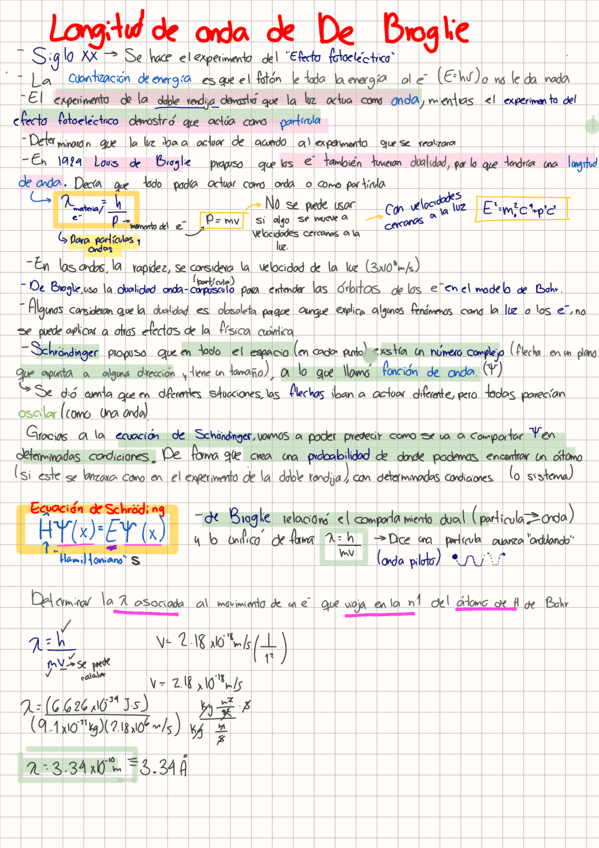 Longitud de onda de De Broglie
- Siglo XX → Se hace el experimento del "Efecto fotoeléctrico"
- La cuantización de energía es que el fotón le da toda la energía al e⁻ (E=hν) o no le da nada
- El experimento de la doble rendija demostró que la luz actua como onda, mientras el experimento del
efecto fotoeléctrico demostró que actúa como partícula
- Determinaron que la luz iba a actuar de acuerdo al experimento que se realizara
- En 1924 Louis de Broglie propuso que los e⁻ también tuvieran dualidad, por lo que tendría una longitud
de onda. Decía que todo podía actuar como onda o como partícula
λ materia/e⁻ = h/P → momento del e⁻
P = mv
→ No se puede usar
si algo se mueve a
velocidades cercanas a la
luz.
→ Con velocidades
cercanas a la luz
E²=m₀²c⁴+p²c²
↳ Para partículas y
ondas
- En las ondas, la rapidez, se considera la velocidad de la luz (3x10⁸ m/s)
- De Broglie, uso la dualidad onda-corpúsculo (partícula) para entender las órbitas de los e⁻ en el modelo de Bohr.
- Algunos consideran que la dualidad es obsoleta porque aunque explica algunos fenómenos como la luz o los e⁻, no
se puede aplicar a otros efectos de la física cuántica
- Schröndinger propuso que en todo el espacio (en cada punto) existía un número complejo (flecha en un plano
que apunta a alguna dirección y tiene un tamaño), a lo que llamó función de onda (Ψ)
↳ Se dió cuenta que en diferentes situaciones, las flechas iban a actuar diferente, pero todas parecían
oscilar (como una onda)
Gracias a la ecuación de Schöndinger, vamos a poder predecir como se va a comportar Ψ en
determinadas condiciones. De forma que crea una probabilidad de donde podemos encontrar un átomo
(si este se lanzara como en el experimento de la doble rendija), con determinadas condiciones. (o sistema)
Ecuación de Schröding
HΨ(x)=EΨ(x)
↑ "Hamiltoniano" s
- de Broglie relacionó el comportamiento dual (partícula ⇄ onda)
y lo unificó de forma λ=h/mv → Dice una partícula avanza "ondulando"
(onda piloto)
Determinar la λ asociada al movimiento de un e⁻ que viaja en la n1 del átomo de H de Bohr
λ = h/mv → se puede
calcular
V= 2.18 x10⁻¹⁸ m/s (1/1²)
V= 2.18 x10⁻¹⁸ m/s
λ= (6.626x10⁻³⁴ J·s)/(9.1x10⁻³¹ kg)(2.18x10⁶ m/s) kg m²/s² · s / kg m/s
λ= 3.34x10⁻¹⁰ m ≡ 3.34 Å